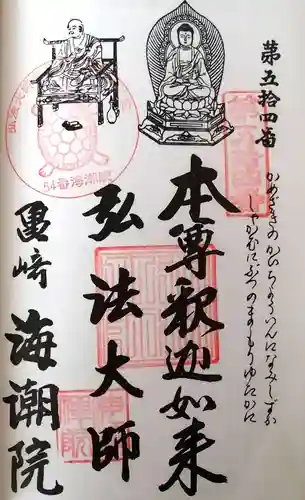 第五拾四番
かめざきのかいちょういんになみしずか
しゃかむにぶつのまもりゆたかに
本尊釈迦如来
弘法大師
亀崎 海潮院
54番海潮院